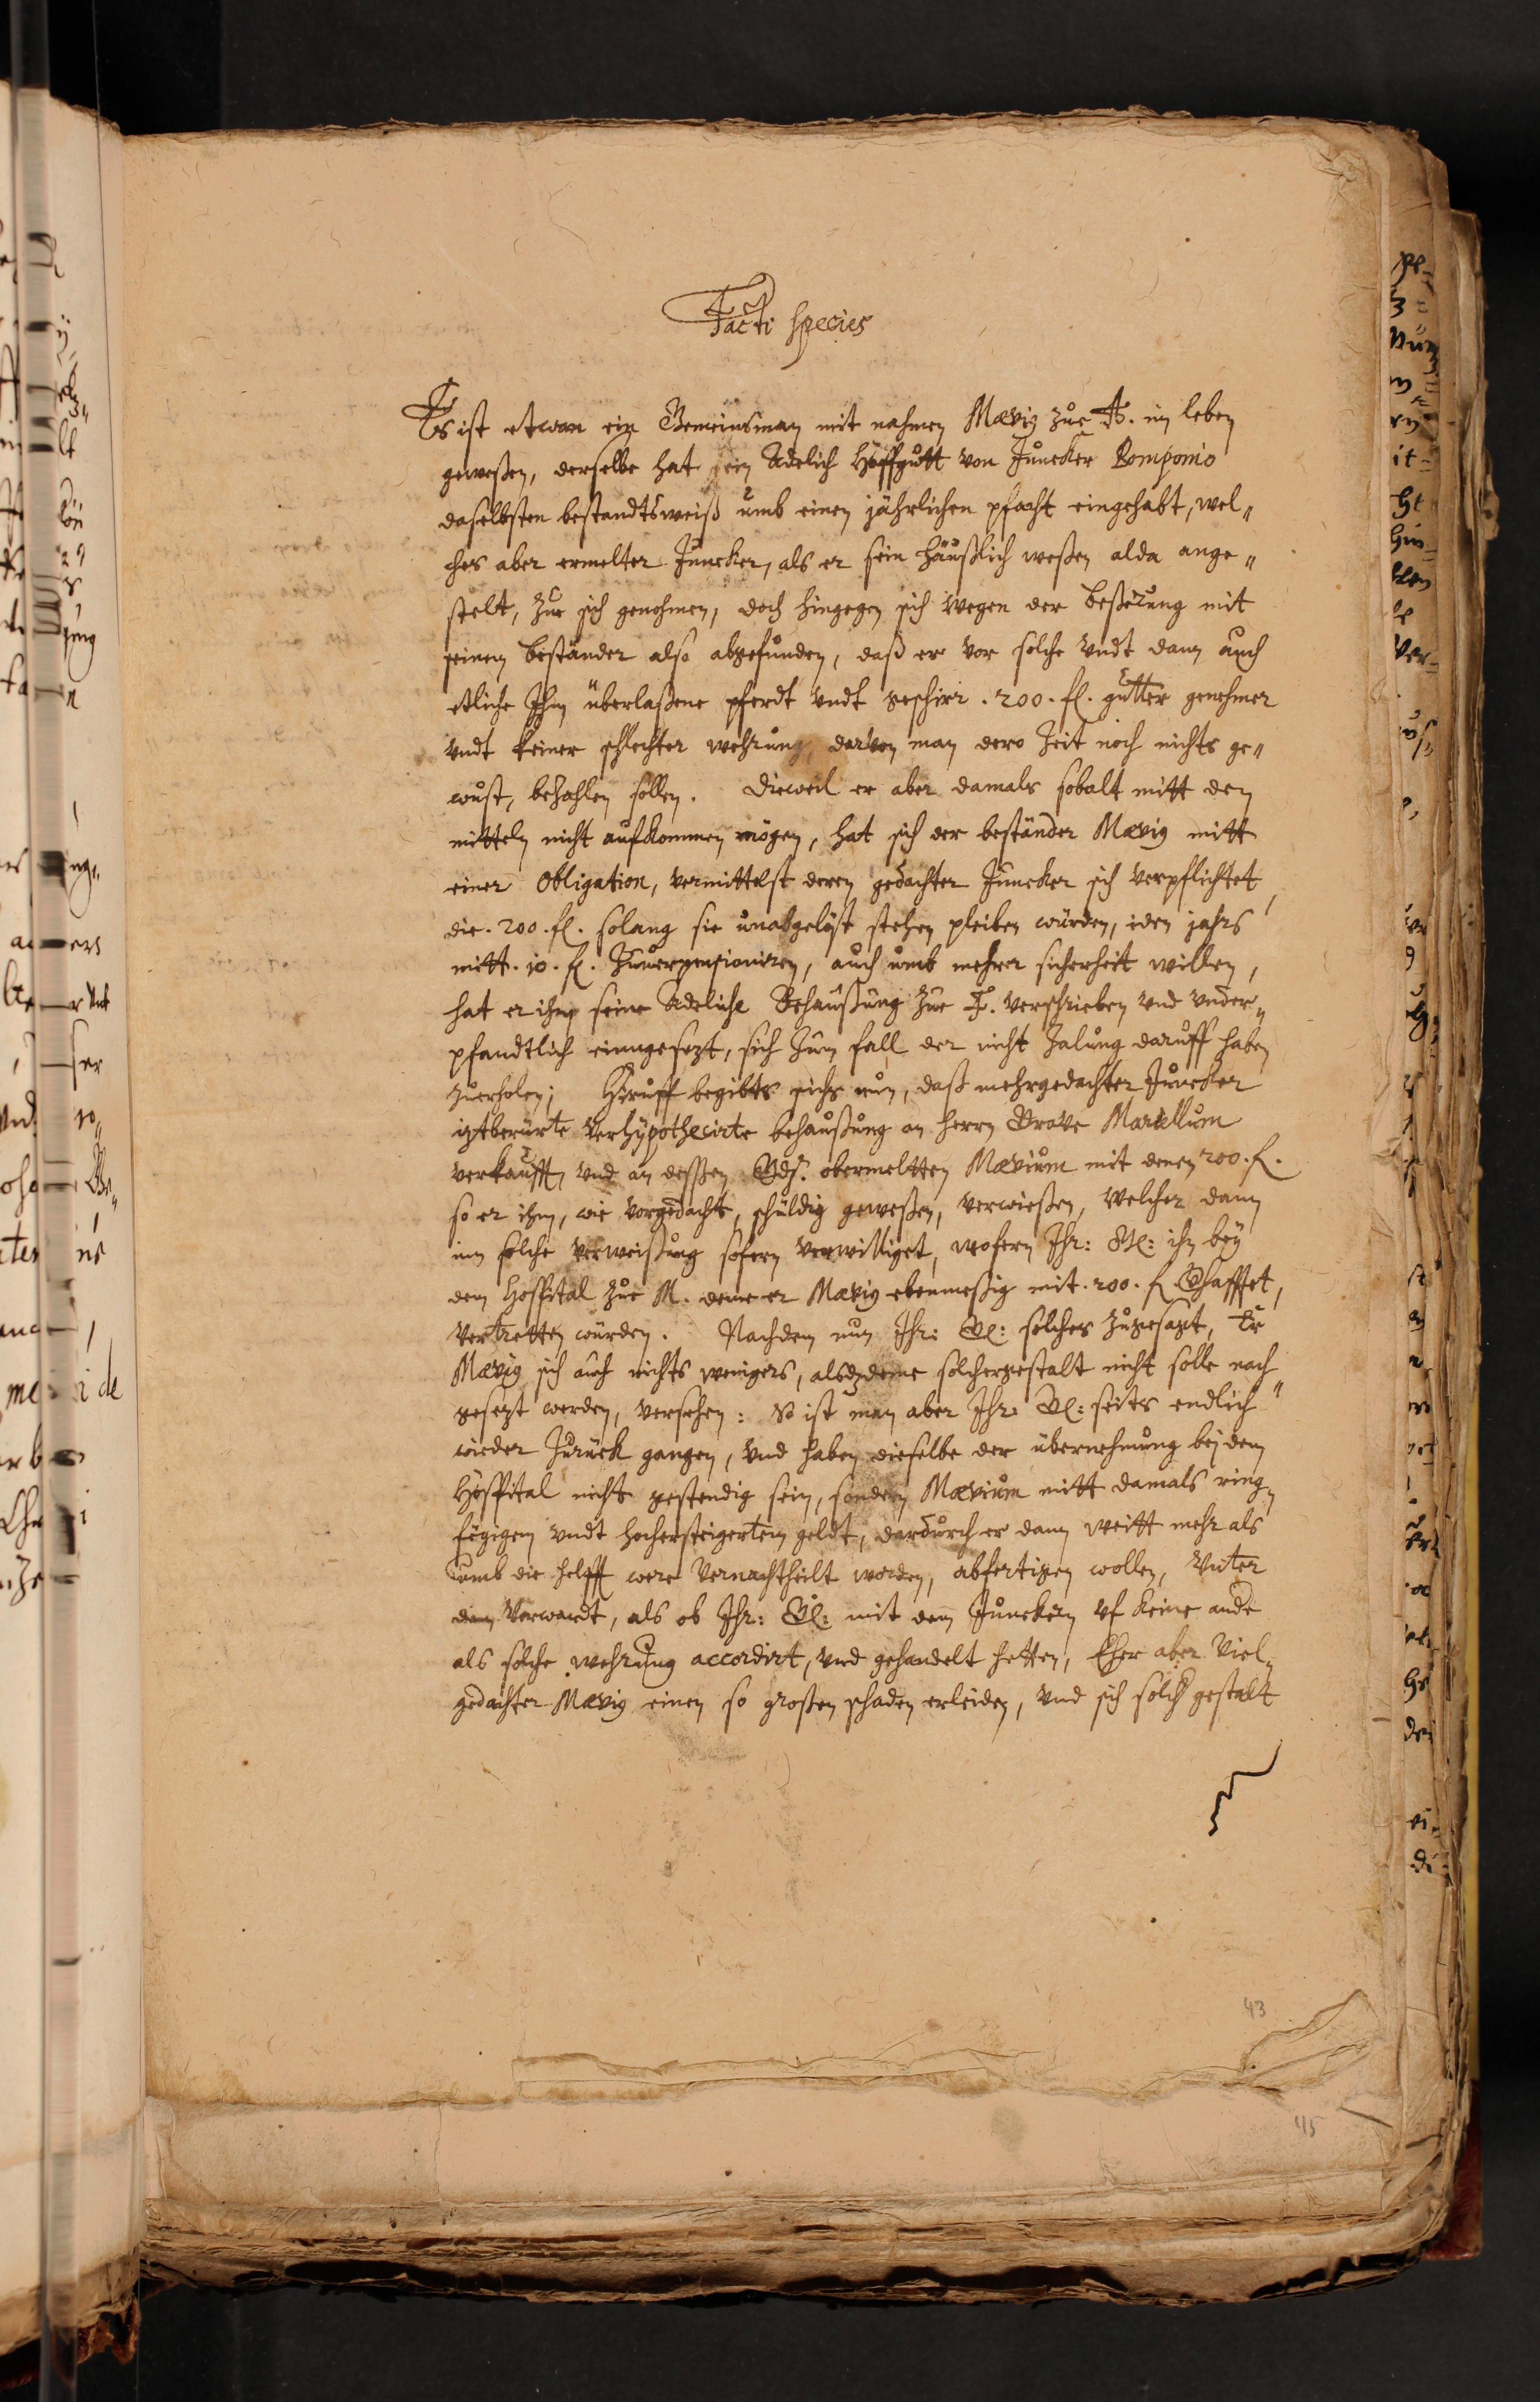 Facti species
Es ist etwan ein Gemeinsman mit nahmen Mævig zue A. im leben
geweßen, derselbe hat sein Adelich Hoffgutt von Juncker Pomponio
daselbsten bestandtsweiß umb einen jährlichen pfacht eingehabt, wel„
ches aber ermelter Juncker, als er sein häußlich weßen alda ange„
stelt, zue sich genohmen, doch hingegen sich wegen der beßerung mit
seinem beständer also abgefunden, daß er vor solche vndt dann auch
etliche Ihm überlaßene pferdt vndt geschirr . 200 . fl. gutter genehmer
vndt keiner schlechter wehrung, darvon man dero Zeit noch nichts ge„
wust, bezahlen sollen. Dieweil er aber damals sobalt mitt den
mitteln nicht aufkommen mögen, hat sich der beständer Mævig mitt
einer obligation, vermittelst deren gedachter Juncker sich verpflichtet,
die . 200 . fl. solang sie unabgelöst stehen pleiben würden, iden jahrs
mitt . 10 . fl. Zuuerpensioniren, auch umb mehrer sicherheit willen,
hat er ihm seine Adeliche Behaußung zue F. verschrieben vnd vnder„
pfandtlich eingesezt, sich Zum fall der nicht Zalung daruff haben
zuerholen; Hieruff begibts sichs nun, daß mehrgedachter Juncker
iztberürte verhypothecirte behaußung an herrn Marcellum
verkaufft, vnd an desßen obermeltten Mævium mit denen 200 . fl.
so er ihm, wie vorgedacht, schuldig geweßen, verwießen, Welcher dann
inn solche verweißung sofern verwilliget, wofern Ihr: ihn bey
dem Hospital zue M. deme er Mævig ebenmeßig mit . 200 . fl verhafftet,
vertretten würden. Nachdem nun Ihr: solches zugesagt, Er
Mævig sich auch nichts wenigers, als deme solchergestalt nicht solle nach„
gesezt werden, versehen: So ist man aber Ihr: seits endlich
wieder Zurück gangen, vnd haben dieselbe der übernehmung bei dem
Hospital nicht gestendig sein, sondern Mævium mitt damals ring„
fügigem vndt hochersteigertem geldt, dardurch er dann weitt mehr als
umb die helfft were vernachtheilt worden, abfertigen wollen, Vnter
dem Vorwandt, als ob Ihr: mit dem Junckern vf keine ande
als solche wehrung accordirt, vnd gehandelt hetten, Eher aber viel„
gedachter Mævig einen so großen schaden erleiden, vnd sich solch gestalt
43
45